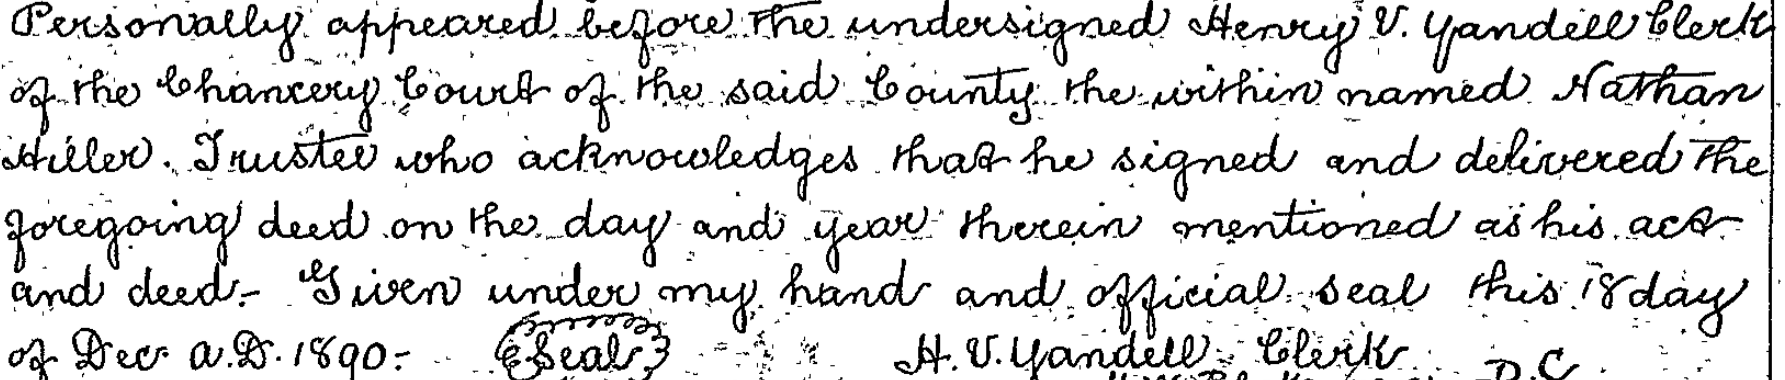 Personally appeared before the undersigned Henry V. Yandell Clerk
of the Chancery Court of the said County the within named Nathan
Hiller. Trustee who acknowledges that he signed and delivered the
foregoing deed on the day and year therein mentioned as his act
and deed.- Given under my hand and official seal this 18 day
of Dec A.D. 1890.- (Seal) H.V. Yandell Clerk
D.C